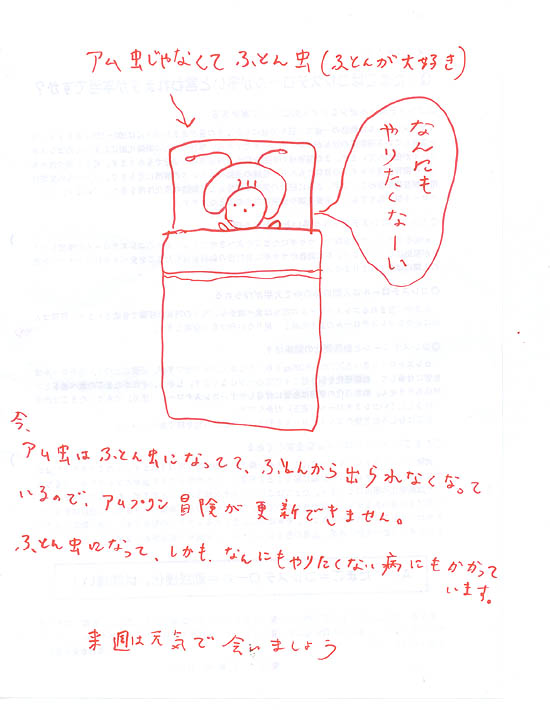 アム虫じゃなくて ふとん虫(ふとんが大好き)
なんにも
やりたくなーい
今、
アム虫はふとん虫になってて、ふとんから出られなくなって
いるので、アムプリン冒険が更新できません。
ふとん虫になって、しかも、なんにもやりたくない病にもかかって
います。
来週は元気で会いましょう